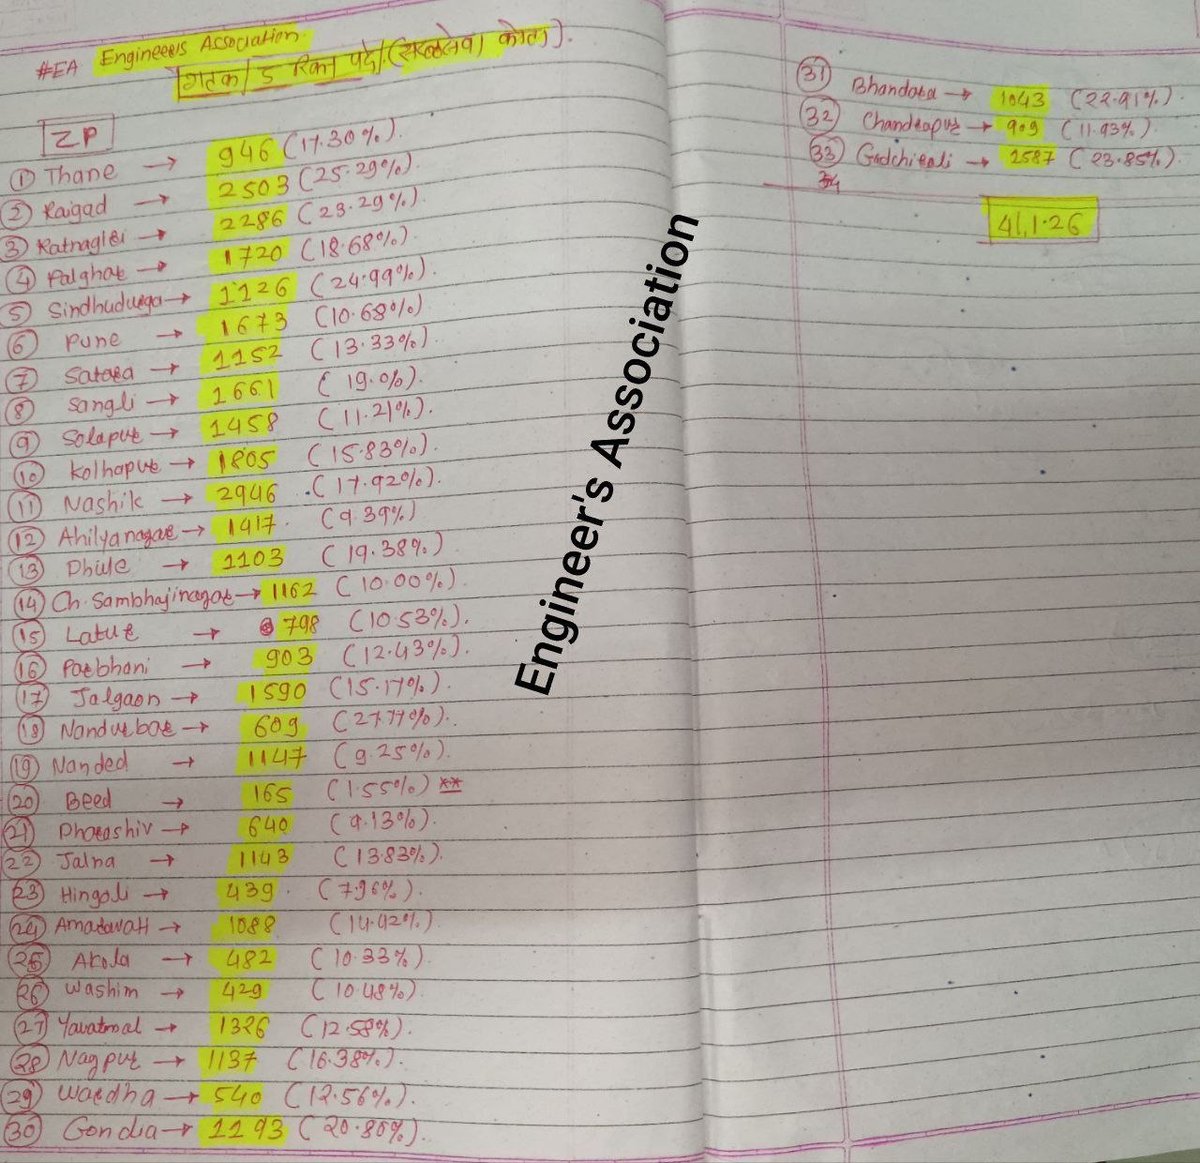 #EA Engineers Association.
गटक/ड रिक्त पदे/(सरळसेवा कोटा).
ZP
① Thane → 946 (17.30%).
② Raigad → 2503 (25.29%).
③ Ratnagiri → 2286 (23.29%).
④ Palghar → 1720 (18.68%).
⑤ Sindhudurga → 1126 (24.99%).
⑥ Pune → 1673 (10.68%)
⑦ Satara → 1152 (13.33%).
⑧ Sangli → 1661 (19.0%).
⑨ Solapur → 1458 (11.21%).
⑩ Kolhapur → 1805 (15.83%).
⑪ Nashik → 2946 (17.92%).
⑫ Ahilyanagar → 1417 (9.39%)
⑬ Dhule → 1103 (19.38%)
⑭ Ch. Sambhajinagar → 1162 (10.00%).
⑮ Latur → 798 (10.53%).
⑯ Parbhani → 903 (12.43%).
⑰ Jalgaon → 1590 (15.17%).
⑱ Nandurbar → 609 (27.77%).
⑲ Nanded → 1147 (9.25%).
⑳ Beed → 165 (1.55%) **
㉑ Dharashiv → 640 (9.13%).
㉒ Jalna → 1143 (13.83%).
㉓ Hingoli → 439. (7.96%).
㉔ Amaravati → 1088 (14.42%).
㉕ Akola → 482 (10.33%).
㉖ Washim → 429 (10.48%).
㉗ Yavatmal → 1326 (12.58%).
㉘ Nagpur → 1137 (16.38%).
㉙ Wardha → 540 (12.56%).
㉚ Gondia → 1193 (20.80%).
㉛ Bhandara → 1043 (22.91%).
㉜ Chandrapur → 909 (11.93%).
㉝ Gadchiroli → 1587 (23.85%).
34
41,126
Engineer's Association